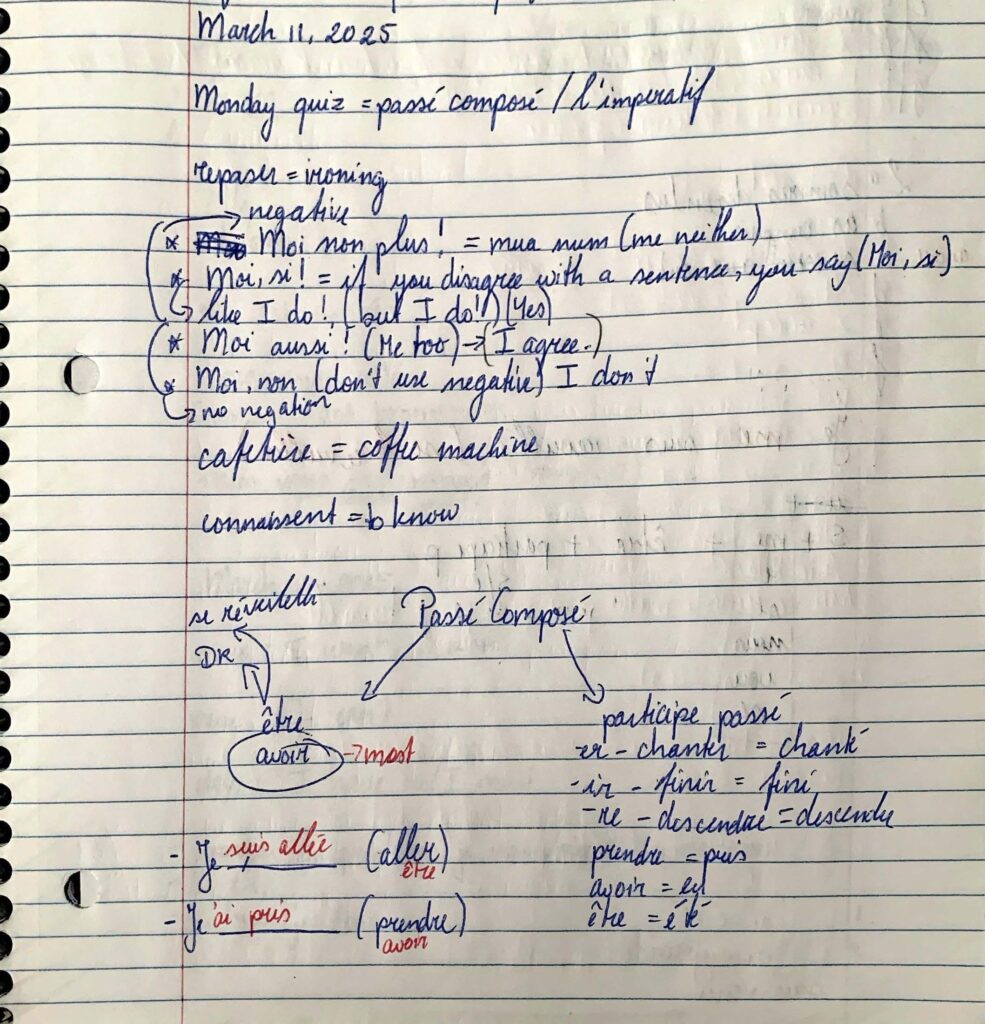 March 11, 2025
Monday quiz = passé composé / l'imperatif
repaser = ironing
negative
* Moi non plus! = mua num (me neither)
* Moi, si! = if you disagree with a sentence, you say (Moi, si)
like I do!, (but I do!) (Yes)
* Moi aussi! (Me too) → (I agree.)
* Moi, non (don't use negative) I don't
no negation
cafetière = coffee machine
connaissent = to know
se réveilelli
Passé Composé
DR
être
avoir → most
participe passé
-er - chanter = chanté
-ir - finir = fini
-re - descendre = descendu
prendre = pris
avoir = eu
être = été
- Je suis allée (aller)
être
- Je 'ai pris (prendre)
avoir